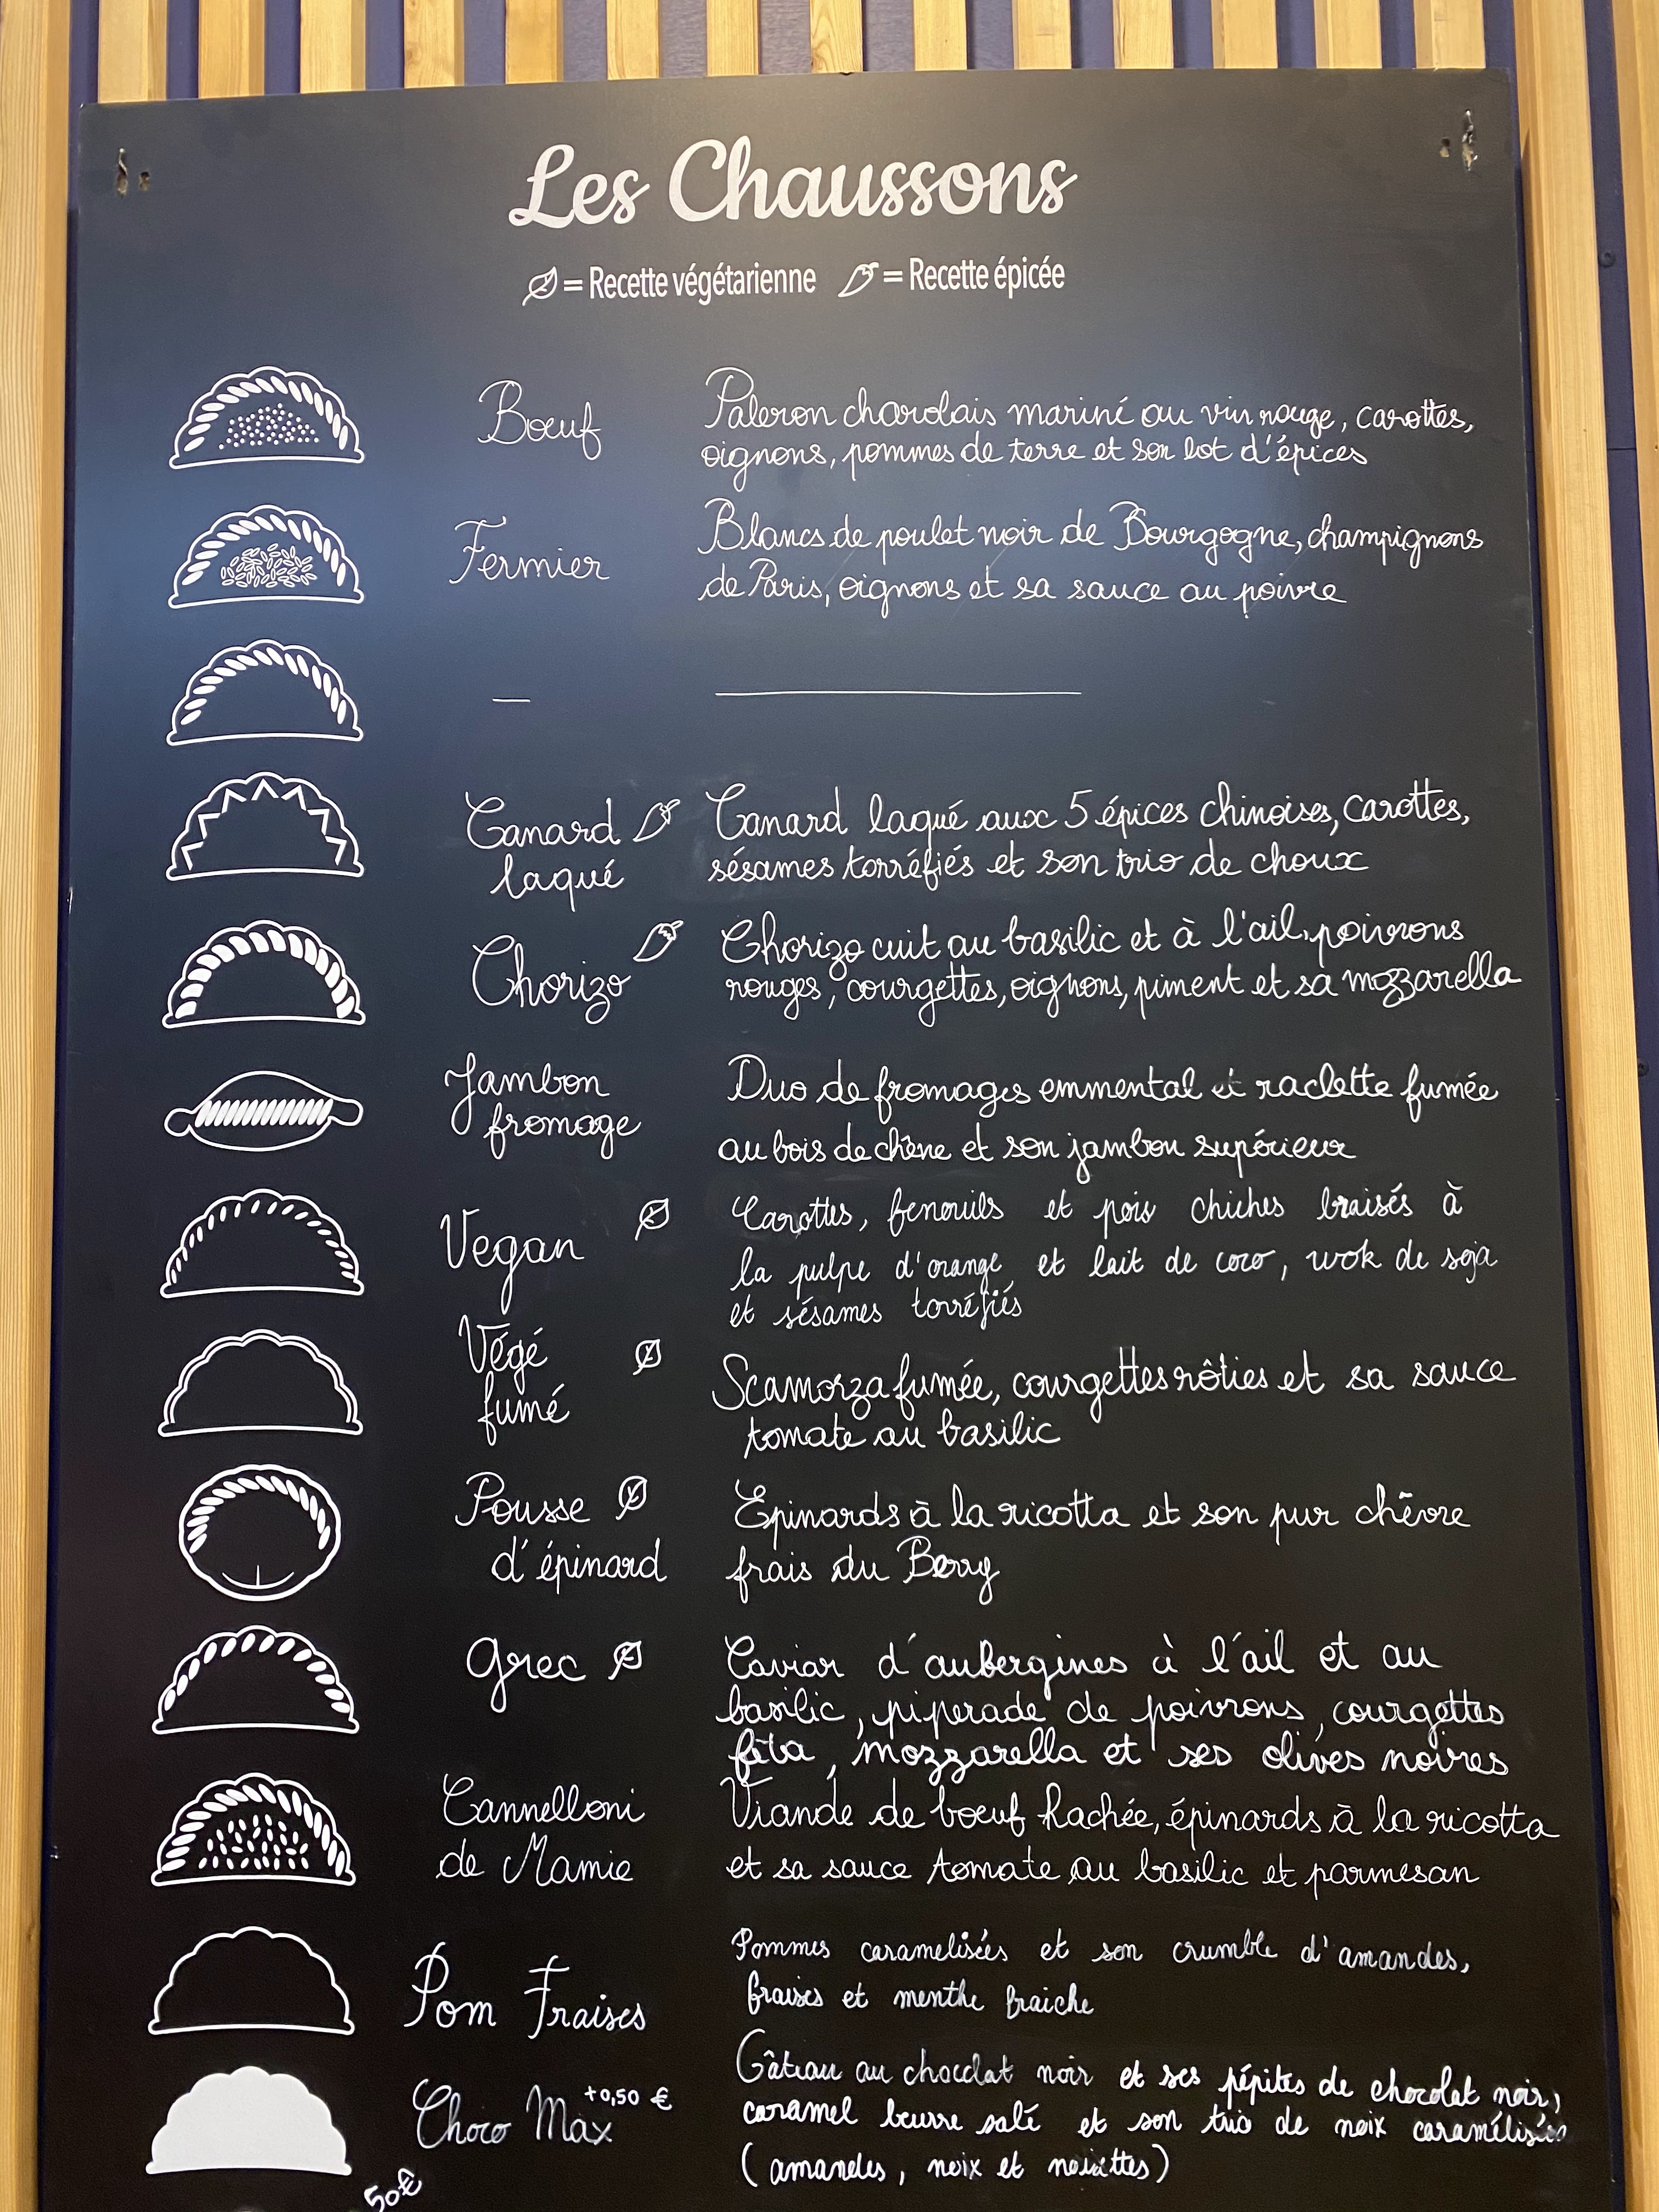 Les Chaussons
= Recette végétarienne = Recette épicée
Bœuf
Paleron charolais mariné au vin rouge, carottes,
oignons, pommes de terre et son lot d'épices
Fermier
Blancs de poulet noir de Bourgogne, champignons
de Paris, oignons et sa sauce au poivre
Canard
laqué
Canard laqué aux 5 épices chinoises, carottes,
sésames torréfiés et son trio de choux
Chorizo
Chorizo cuit au basilic et à l'ail, poivrons
rouges, courgettes, oignons, piment et sa mozzarella
Jambon
fromage
Duo de fromages emmental et raclette fumée
au bois de chêne et son jambon supérieur
Vegan
Carottes, fenouils et pois chiches braisés à
la pulpe d'orange et lait de coco, wok de soja
et sésames torréfiés
Végé
fumé
Scamorza fumée, courgettes rôties et sa sauce
tomate au basilic
Pousse
d'épinard
Epinards à la ricotta et son pur chèvre
frais du Berry
Grec
Caviar d'aubergines à l'ail et au
basilic, piperade de poivrons, courgettes
fêta, mozzarella et ses olives noires
Cannelloni
de Mamie
Viande de bœuf hachée, épinards à la ricotta
et sa sauce tomate au basilic et parmesan
Pom Fraises
Pommes caramelisées et son crumble d'amandes,
fraises et menthe fraiche
Choco Max +0,50 €
Gâteau au chocolat noir et ses pépites de chocolat noir,
caramel beurre salé et son trio de noix caramélisées
(amandes, noix et noisettes)
50€